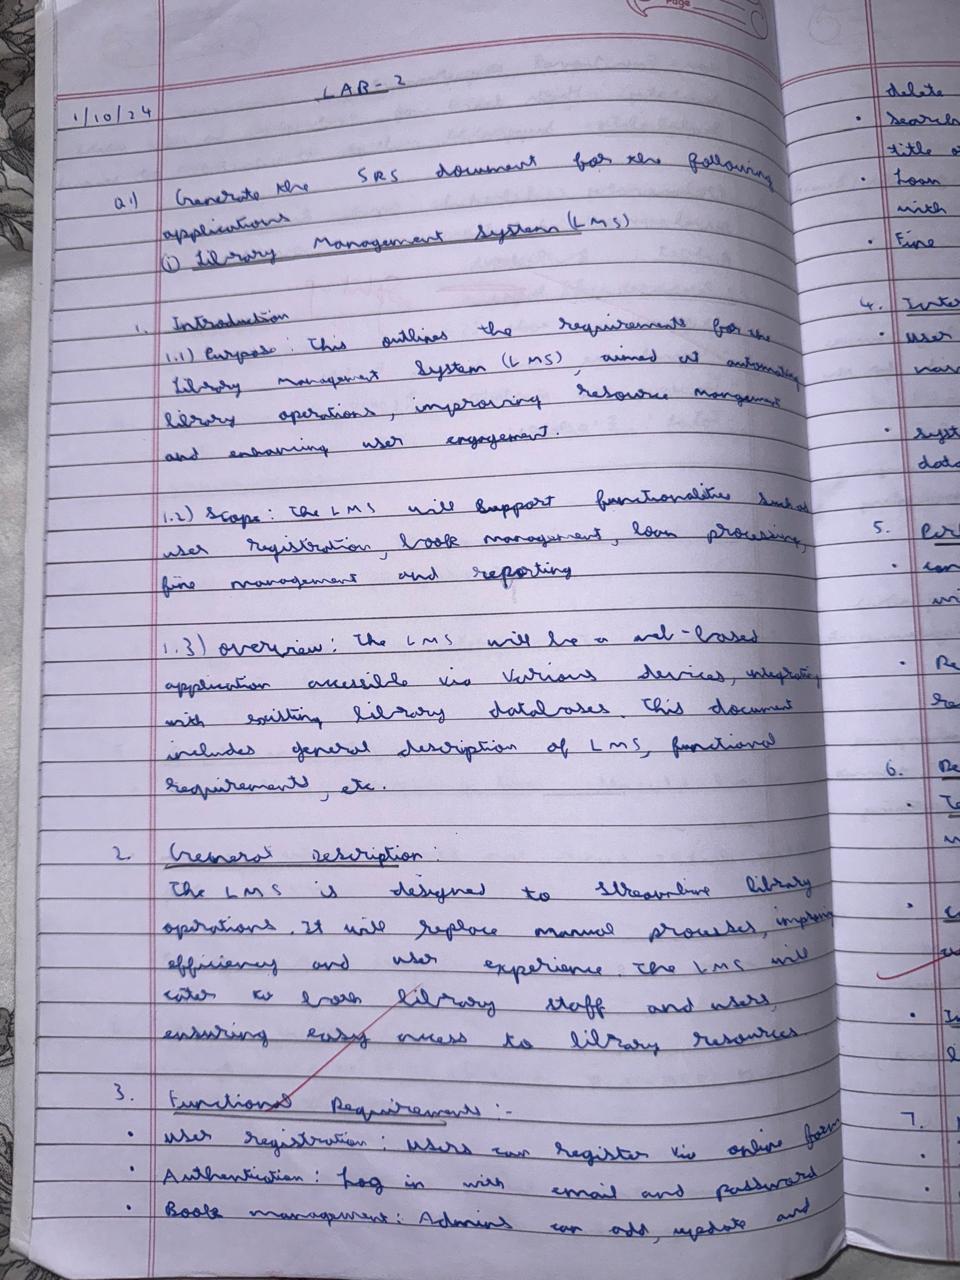 Page
LAB - 2
1/10/24
Q1) Generate the SRS document for the following
applications
(i) Library Management System (LMS)
1. Introduction
1.1) Purpose : This outlines the requirements for the
Library Management System (LMS), aimed at automating
library operations, improving resource mangement
and enhancing user engagement.
1.2) Scope : The LMS will support functionalities such as
user registration, book management, loan processing,
fine management and reporting
1.3) Overview : The LMS will be a web-based
application accessible via various devices, integrating
with existing library databases. This document
includes general description of LMS, functional
requirements, etc.
2. General Description :
The LMS is designed to streamline library
operations. It will replace manual processes, improving
efficiency and user experience. The LMS will
cater to both library staff and users,
ensuring easy access to library resources
3. Functional Requirements :-
• User registration : Users can register via online form
• Authentication : Log in with email and password
• Book management : Admins can add, update and
delete
• Search
title
• Loan
with
• Fine
4.
• User
• syst
data
5.
•
•
6.
•
•
•
7.
•
•